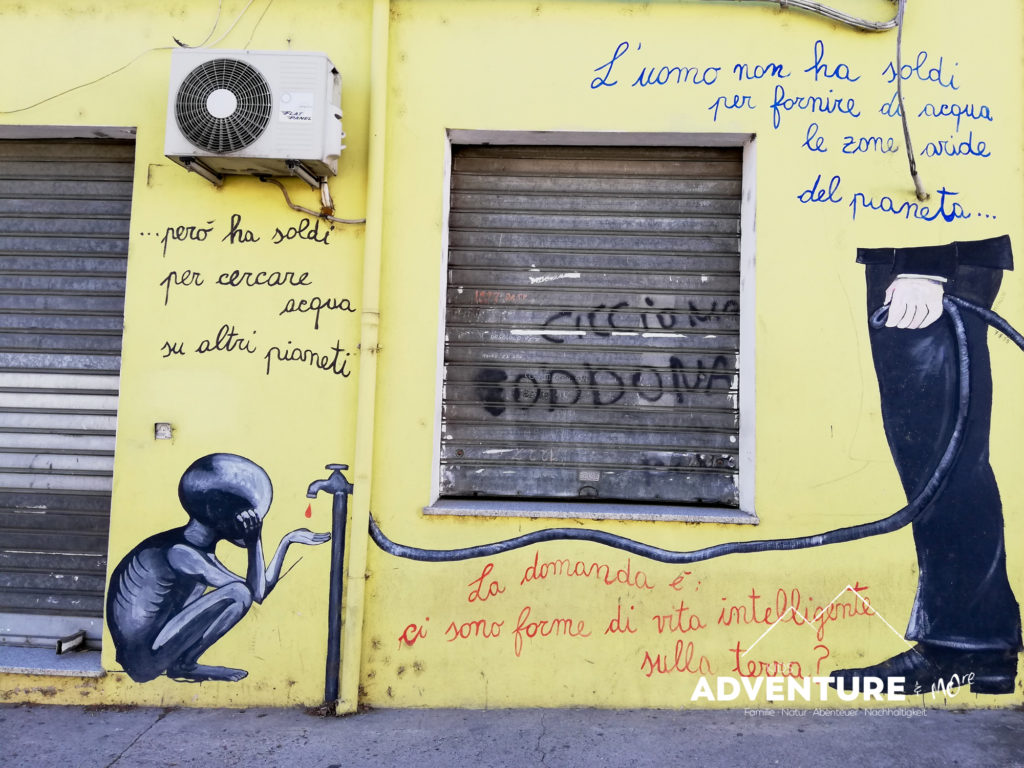 L'uomo non ha soldi
per fornire di acqua
le zone aride
del pianeta...
...però ha soldi
per cercare
acqua
su altri pianeti
La domanda é:
ci sono forme di vita intelligente
sulla terra?
FLAT
PANEL
ADVENTURE & MOre
Familie · Natur · Abenteuer · Nachhaltigkeit